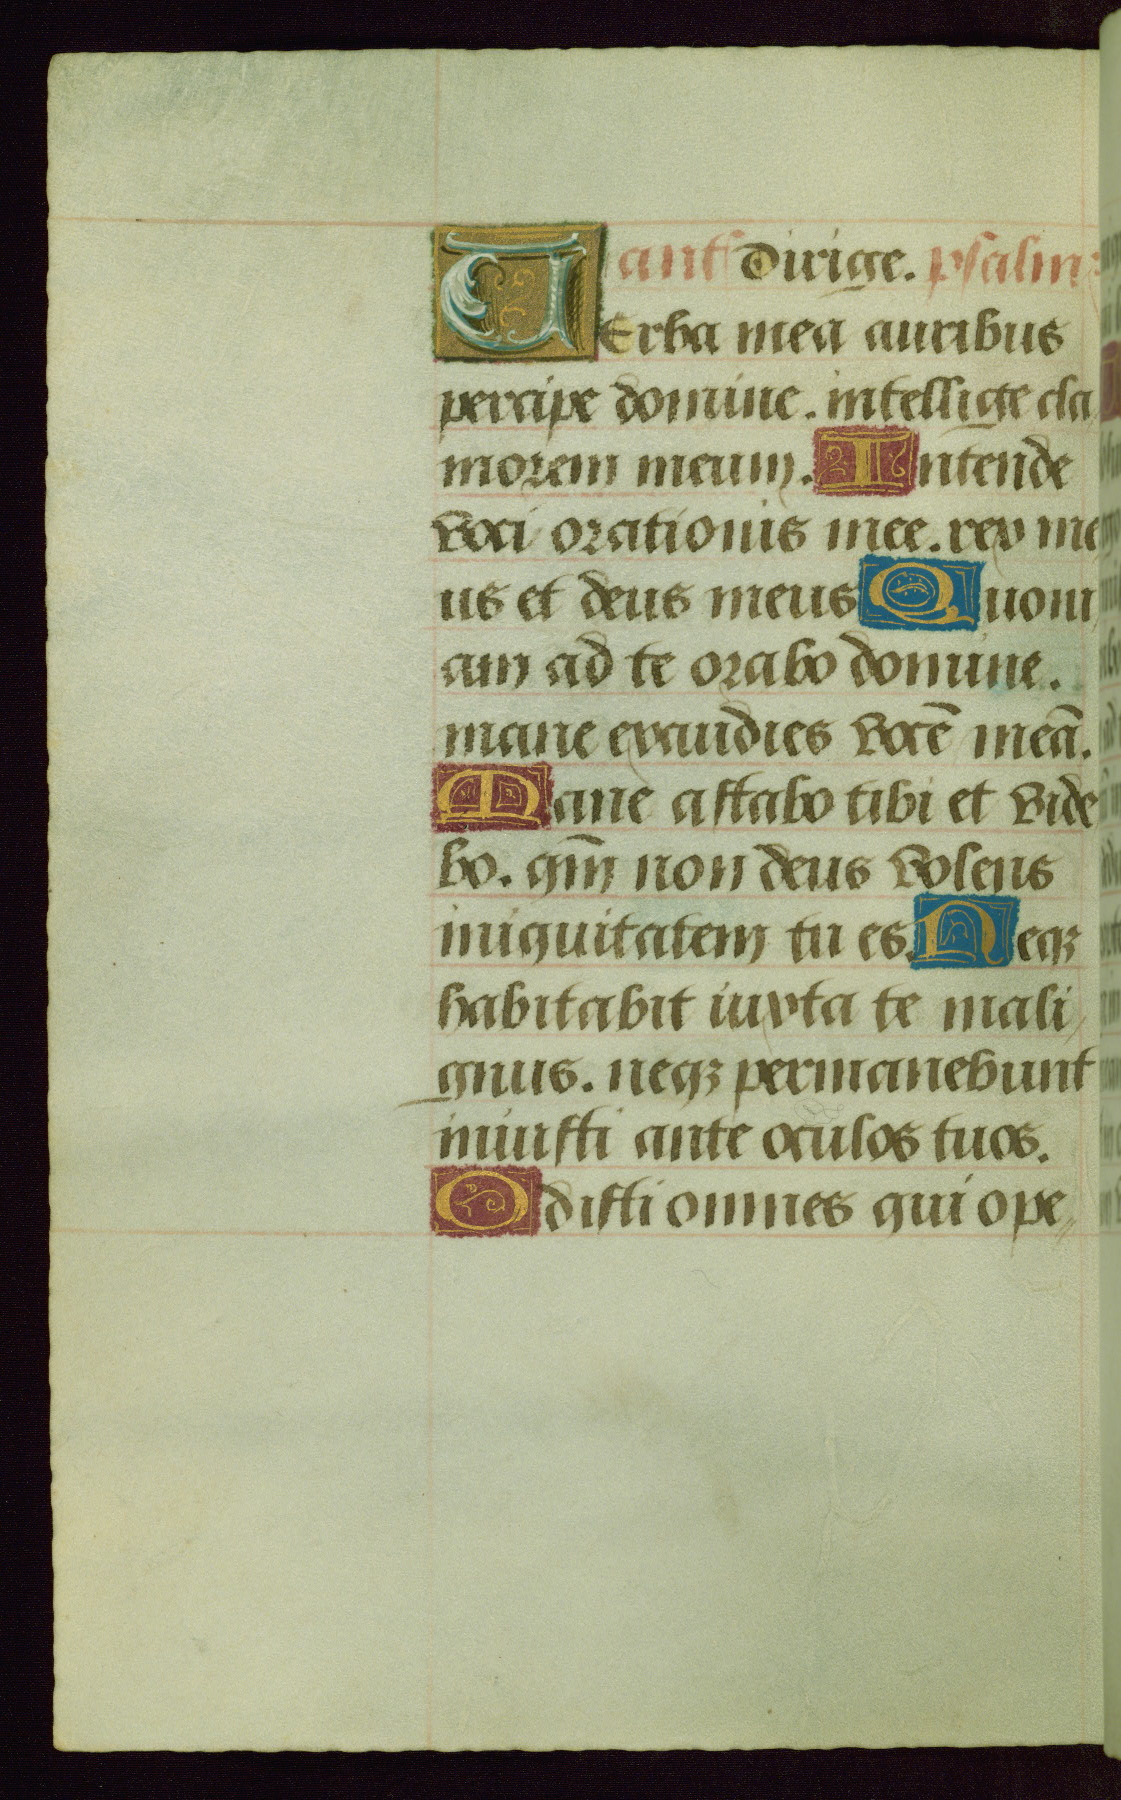 ant̄ Dirige. psalm⁹
VErba mea auribus
percipe domine. intellige cla
morem meum. Intende
voci orationis mee. rex me
us et deus meus Quoni
am ad te orabo domine.
mane exaudies vocē meā.
Mane astabo tibi et vide
bo. qm̄ non deus volens
iniquitatem tu es. Neqꝫ
habitabit iuxta te mali
gnus. neqꝫ permanebunt
iniusti ante oculos tuos.
Odisti omnes qui ope